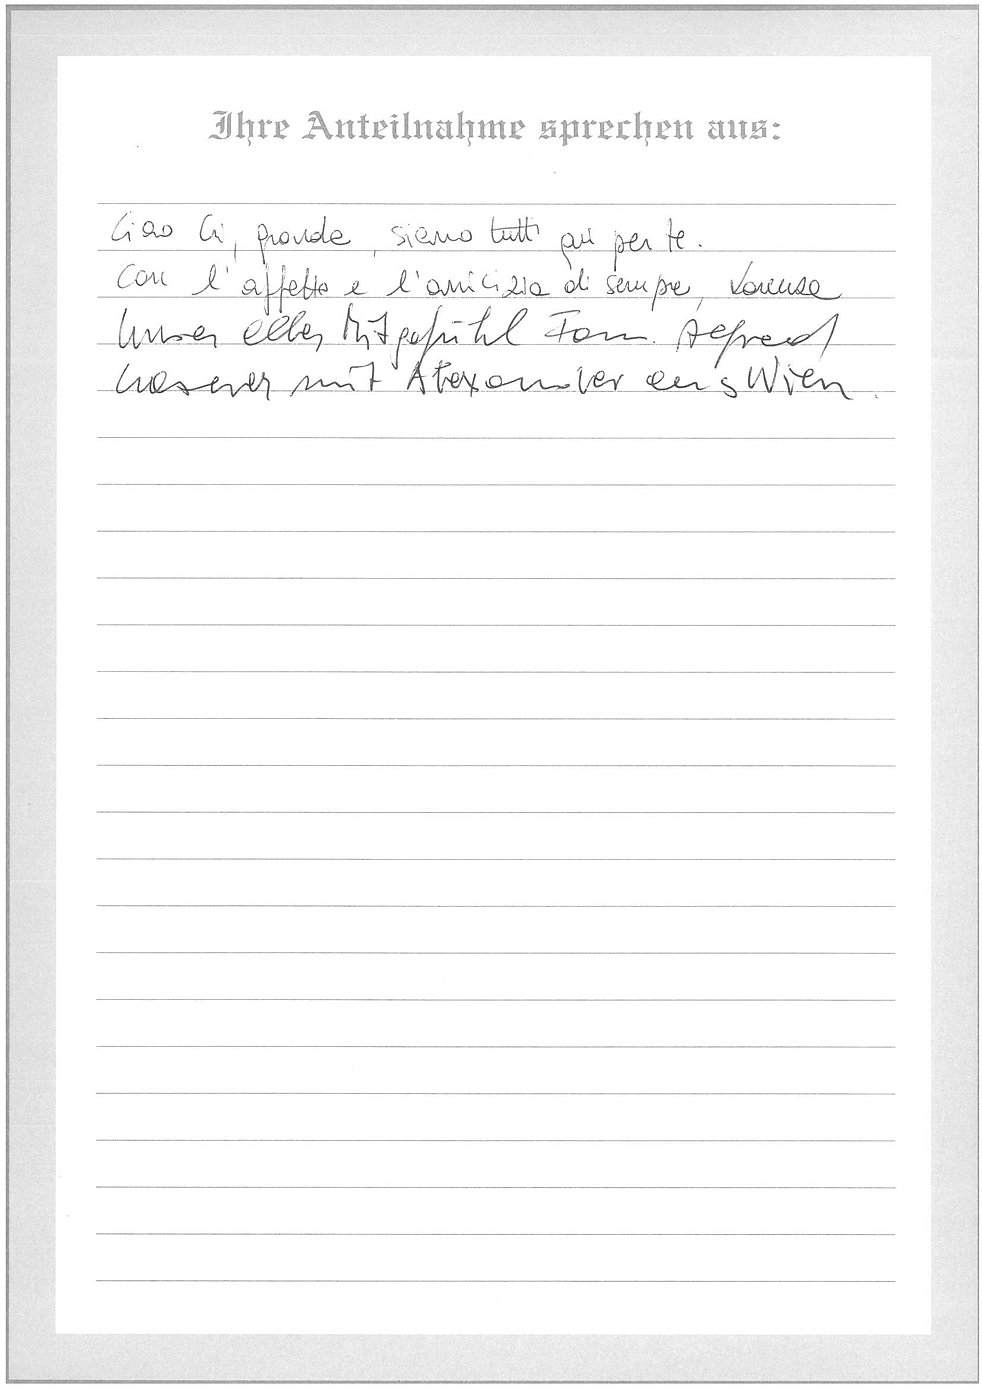 Ihre Anteilnahme sprechen aus:
Ciao Ci, grande, siamo tutti qui per te.
Con l'affetto e l'amicizia di sempre, Lorenza
Unser aller Mitgefühl Fam. Alfred
mit Alexander aus Wien.